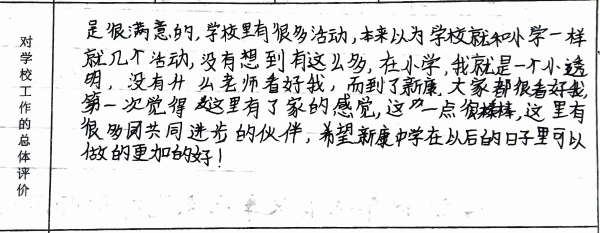 对学校工作的总体评价
是很满意的,学校里有很多活动,本来以为学校就和小学一样
就几个活动,没有想到有这么多,在小学,我就是一个小透
明,没有什么老师看好我,而到了新康,大家都很看好我
第一次觉得这里有了家的感觉,这一点很棒,这里有
很多同共同进步的伙伴,希望新康中学在以后的日子里可以
做的更加的好!